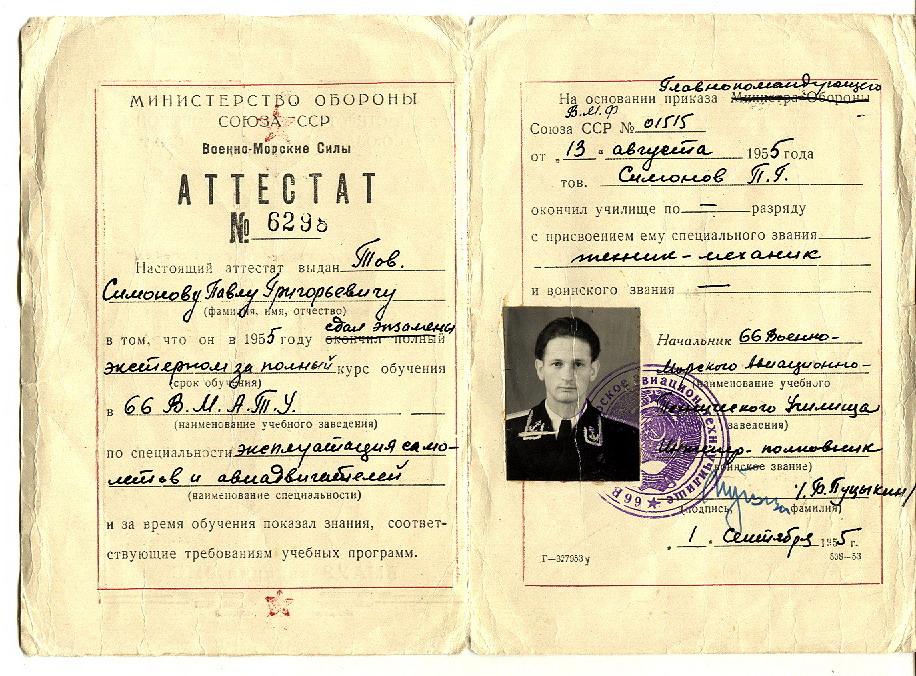 МИНИСТЕРСТВО ОБОРОНЫ
СОЮЗА ССР
Военно-Морские Силы
АТТЕСТАТ
№ 6298
Настоящий аттестат выдан Тов.
Симонову Павлу Григорьевичу
(фамилия, имя, отчество)
сдал экзамены
в том, что он в 1955 году окончил полный
экстерном за полный курс обучения
(срок обучения)
в 66 В.М.А.Т.У.
(наименование учебного заведения)
по специальности эксплуатация само-
летов и авиадвигателей
(наименование специальности)
и за время обучения показал знания, соответ-
ствующие требованиям учебных программ.
Главнокомандующего
На основании приказа Министра Обороны
В.М.Ф
Союза ССР № 01515
от „13“ августа 1955 года
тов. Симонов П.Г.
окончил училище по — разряду
с присвоением ему специального звания
техник-механик
и воинского звания —
Начальник 66 Военно-
Морского Авиационно-
(наименование учебного
Технического Училища
заведения)
Инженер-полковник
(воинское звание)
/. Ф. Пуцыкин/
(подпись, фамилия)
„1“ Сентября 1955 г.
Г—327953 у
538—53